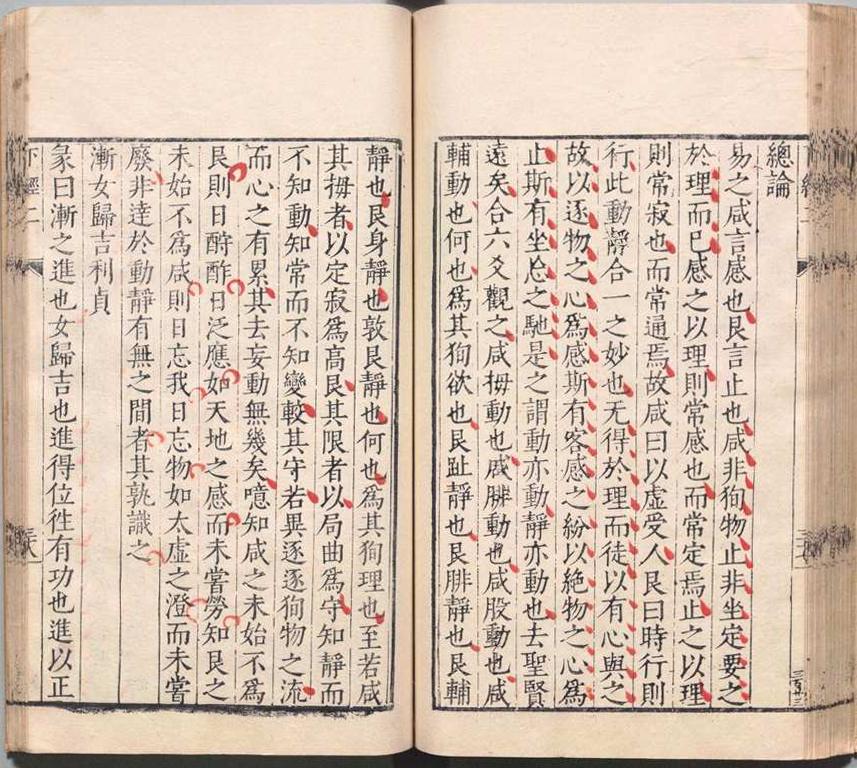 總論
易之咸言感也艮言止也咸非狥物止非坐定要之
於理而已感之以理則常感也而常定焉止之以理
則常寂也而常通焉故咸曰以虛受人艮曰時行則
行此動靜合一之妙也无得於理而徒以有心與之
故以逐物之心爲感斯有客感之紛以絶物之心爲
止斯有坐忘之馳是之謂動亦動靜亦動也去聖賢
遠矣合六爻觀之咸拇動也咸腓動也咸股動也咸
輔動也何也爲其狥欲也艮趾靜也艮腓靜也艮輔
靜也艮身靜也敦艮靜也何也爲其狥理也至若咸
其拇者以定寂爲高艮其限者以局曲爲守知靜而
不知動知常而不知變較其守若異逐逐狥物之流
而心之有累其去妄動無幾矣噫知咸之未始不爲
艮則日酧酢日泛應如天地之感而未嘗勞知艮之
未始不爲咸則日忘我日忘物如太虛之澄而未嘗
廢非達於動靜有無之間者其孰識之
漸女歸吉利貞
彖曰漸之進也女歸吉也進得位徃有功也進以正
下經二